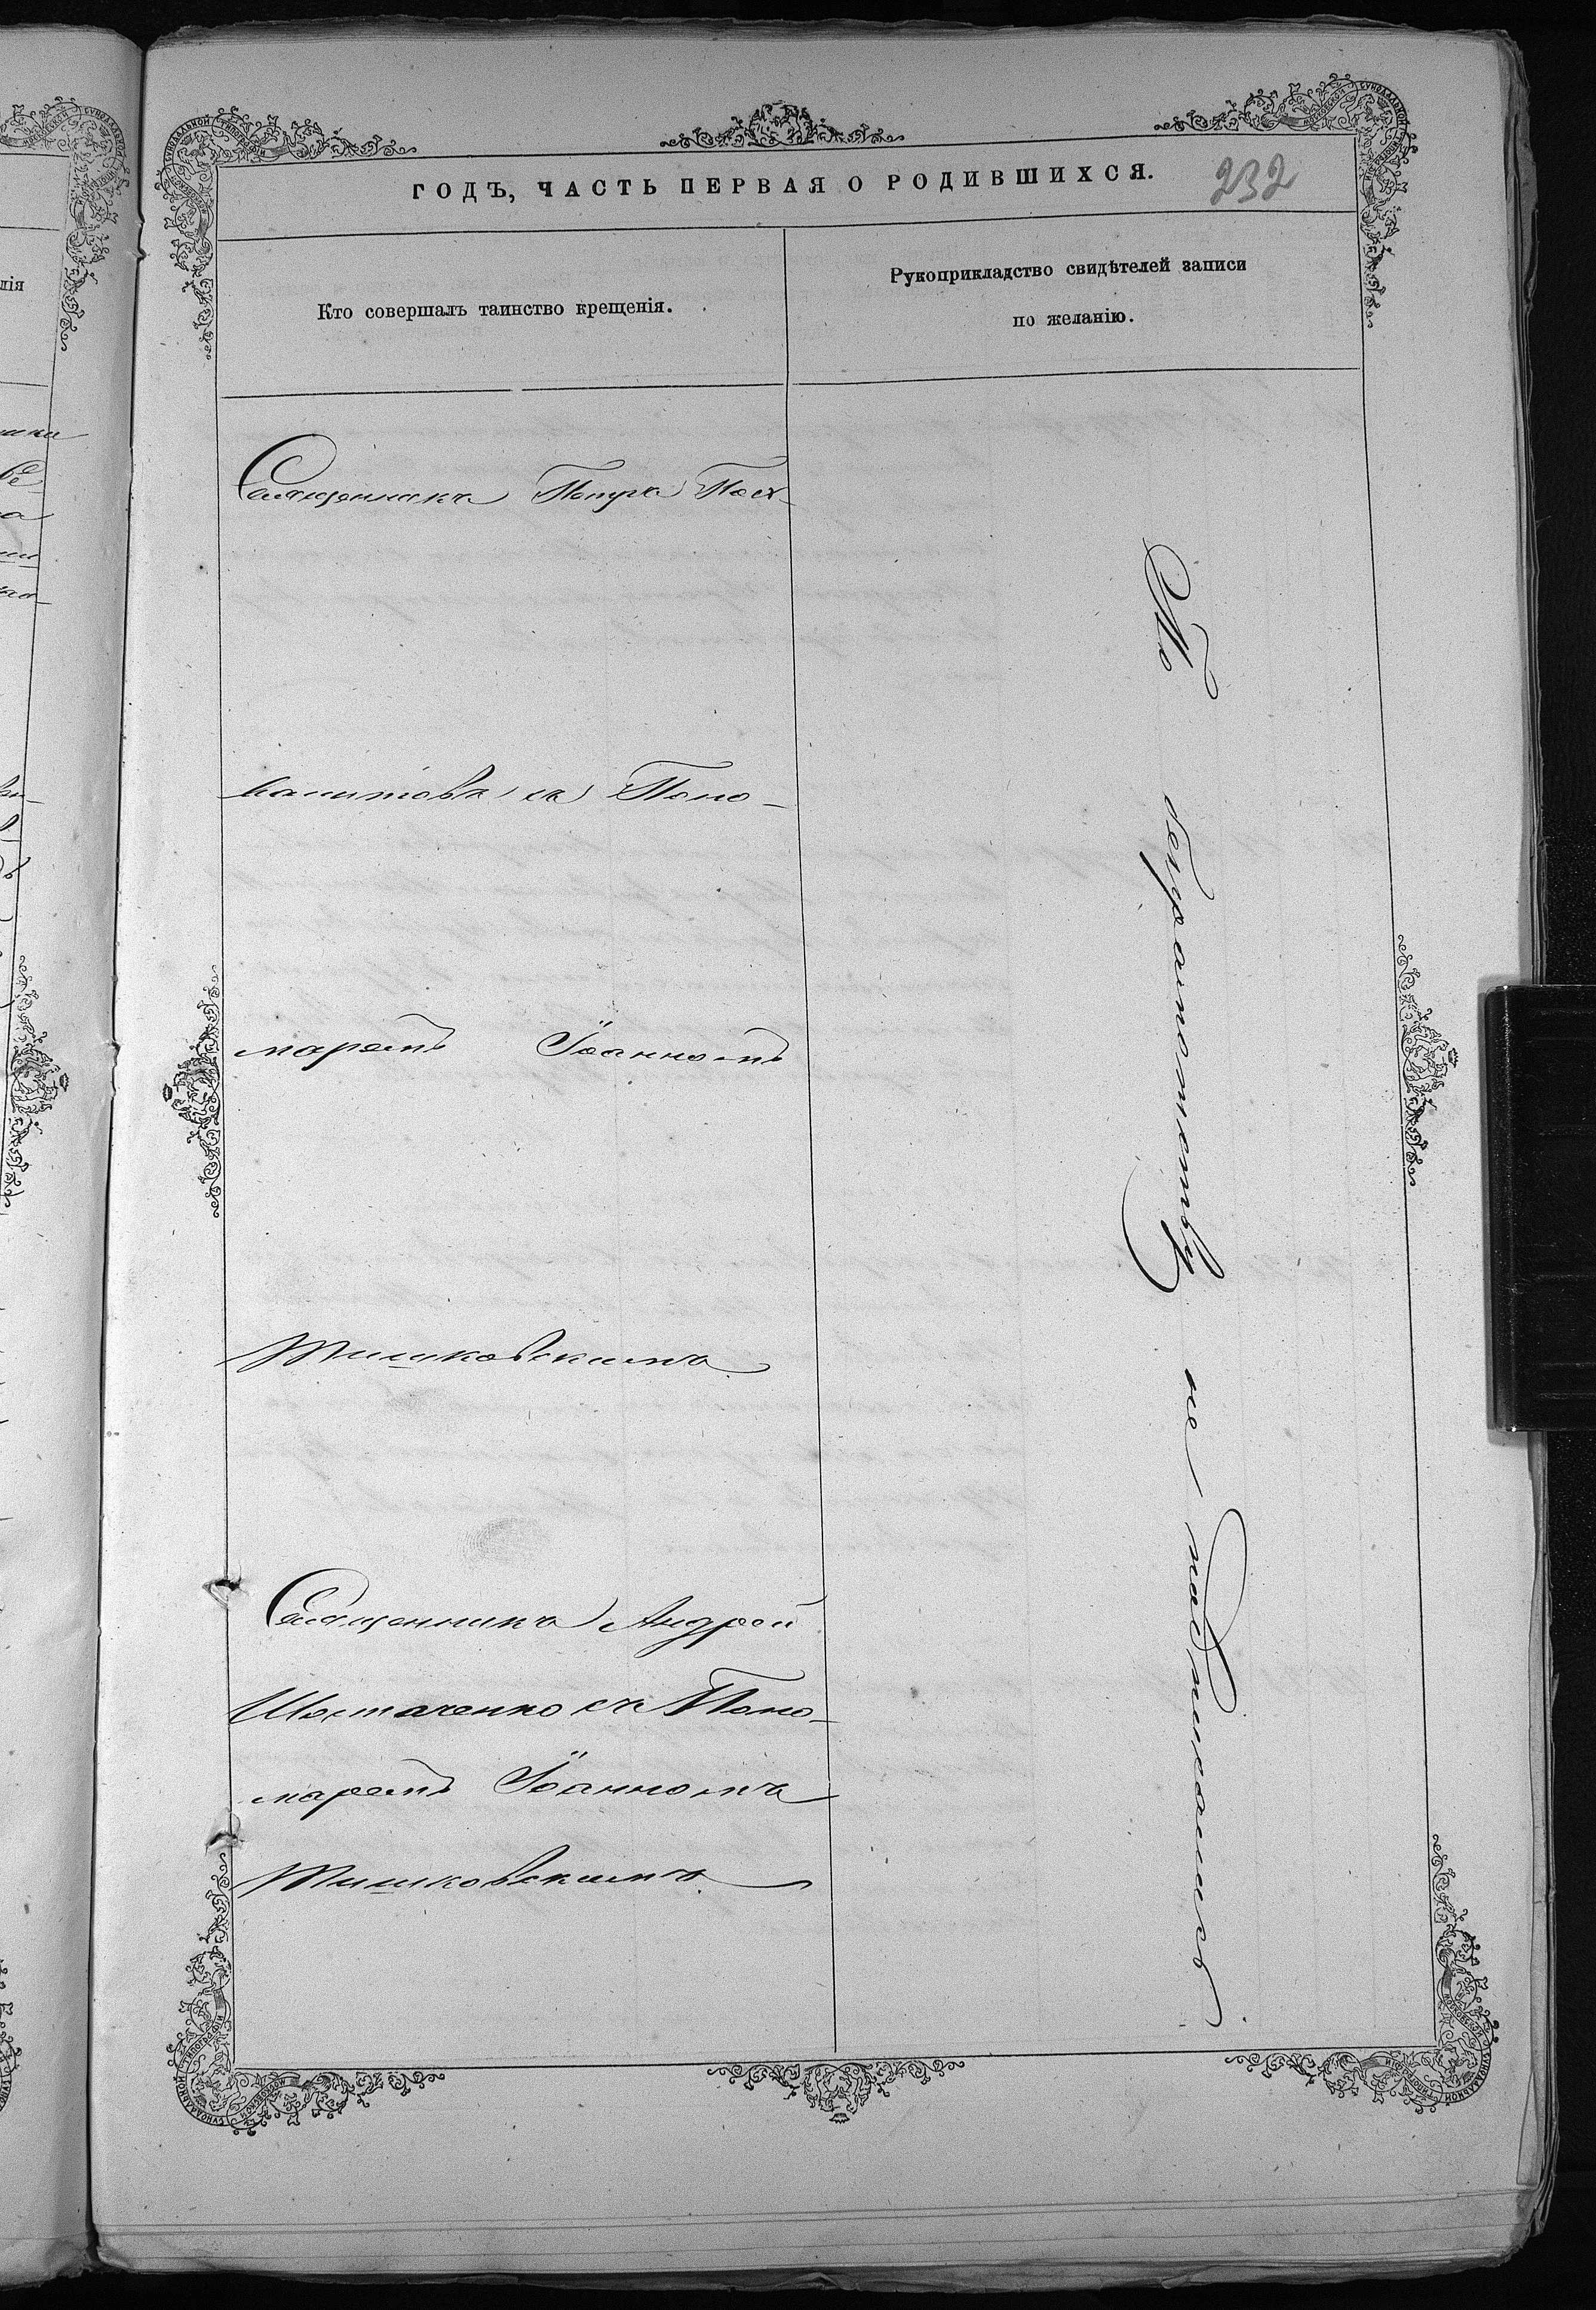 ГОДЪ, ЧАСТЬ ПЕРВАЯ О РОДИВШИХСЯ.
232
Кто совершалъ таинство крещенія.
Рукоприкладство свидѣтелей записи
по желанію.
Священникъ Петръ
съ Поно-
маремъ Іоанномъ
Тишковскимъ
Священникъ Андрей
Шостаченко съ Поно-
маремъ Іоанномъ
Тишковскимъ
По безграмотству не подписались
лія